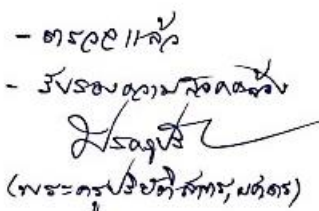 - ตรวจแล้ว
- รับรองความสอดคล้อง
(พระครูปริยัติสาทร, ผศ.ดร.)